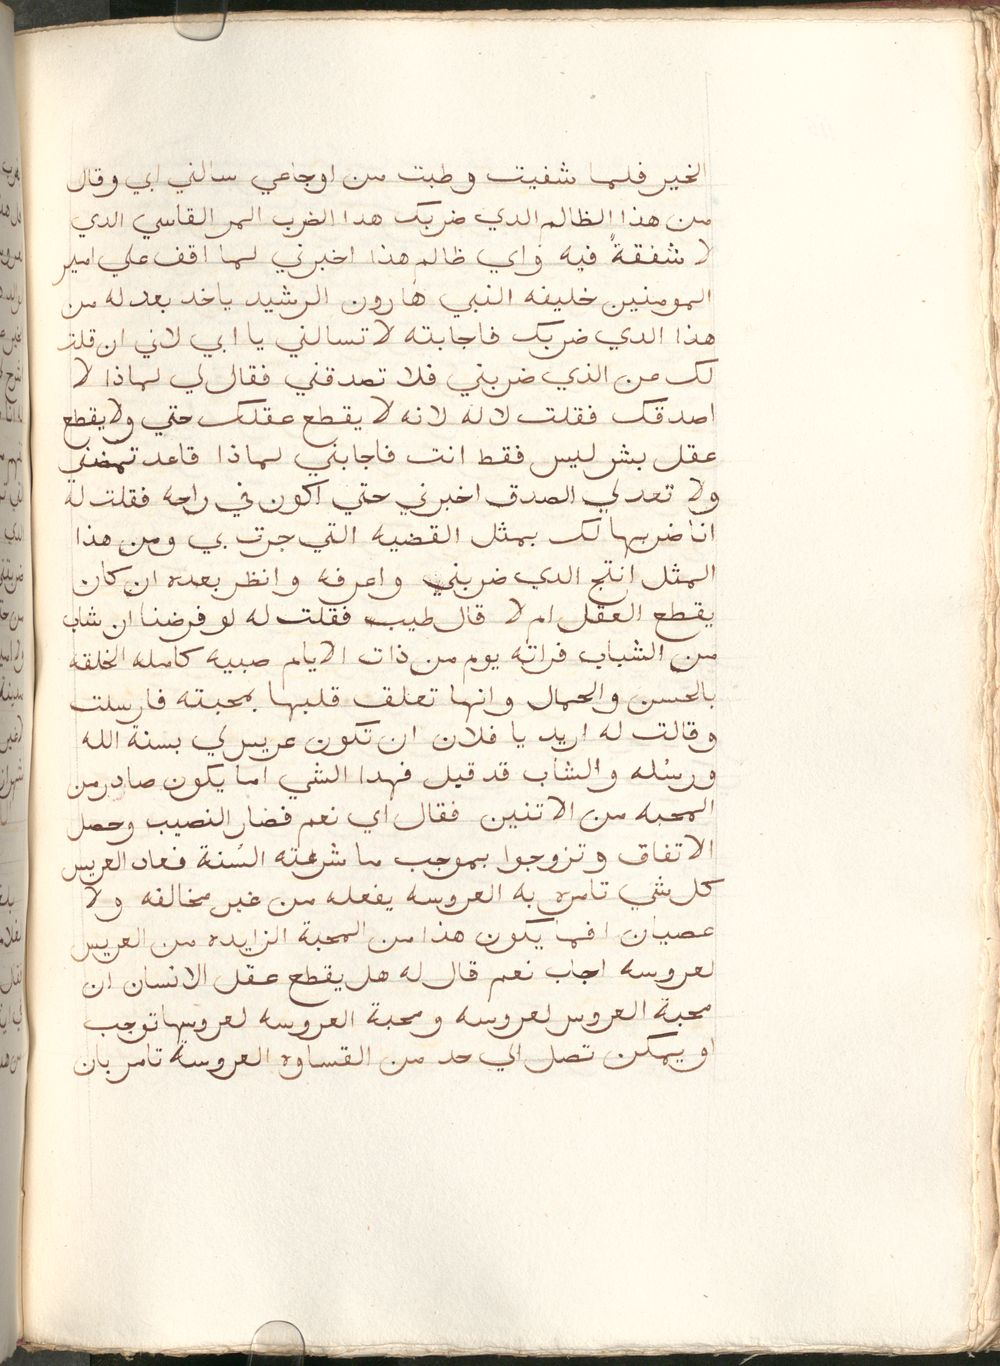 الخير فلما شفيت وطبت من اوجاعي سالني ابي وقال
من هذا الظالم الدي ضربك هدا الضرب المر القاسي الدي
لا شفقة فيه واي ظالم هذا اخبرني لما اقف علي امير
المومنين خليفه النبي هارون الرشيد ياخد بعدله من
هذا الدي ضربك فاجابته لا تسالني يا ابي لاني ان قلت
لك من الذي ضربني فلا تصدقني فقال لي لماذا لا
اصدقك فقلت لا له لانه لا يقطع عقلك حتي ولا يقطع
عقل بشر ليس فقط انت فاجابني لماذا قاعد
ولا تعد لي الصدق اخبرني حتي اكون في راحه فقلت له
انا ضربها لك بمثل القضيه التي جرت بي ومن هذا
المثل انتج الدي ضربني واعرفه وانظر بعده ان كان
يقطع العقل ام لا قال طيب فقلت له لو فرضنا ان شاب
من الشباب فراته يوم من ذات الايام صبيه كامله الخلقه
بالحسن والجمال وانها تعلق قلبها بمحبته فارسلت
وقالت له اريد يا فلان ان تكون عريس لي بسنة الله
ورسله والشاب قد قيل فهدا الشي اما يكون صادر من
المحبه من الاتنين فقال اي نعم فصار النصيب وحصل
الاتفاق وتزوجوا بموجب ما شرعته السنة فعاد العريس
كل شي تامره به العروسه يفعله من غير مخالفه ولا
عصيان افما يكون هذا من المحبة الزايده من العريس
لعروسه اجاب نعم قال له هل يقطع عقل الانسان ان
محبة العروس لعروسه ومحبة العروسه لعروسها توجب
او يمكن تصل الي حد من القساوه العروسة تامر بان